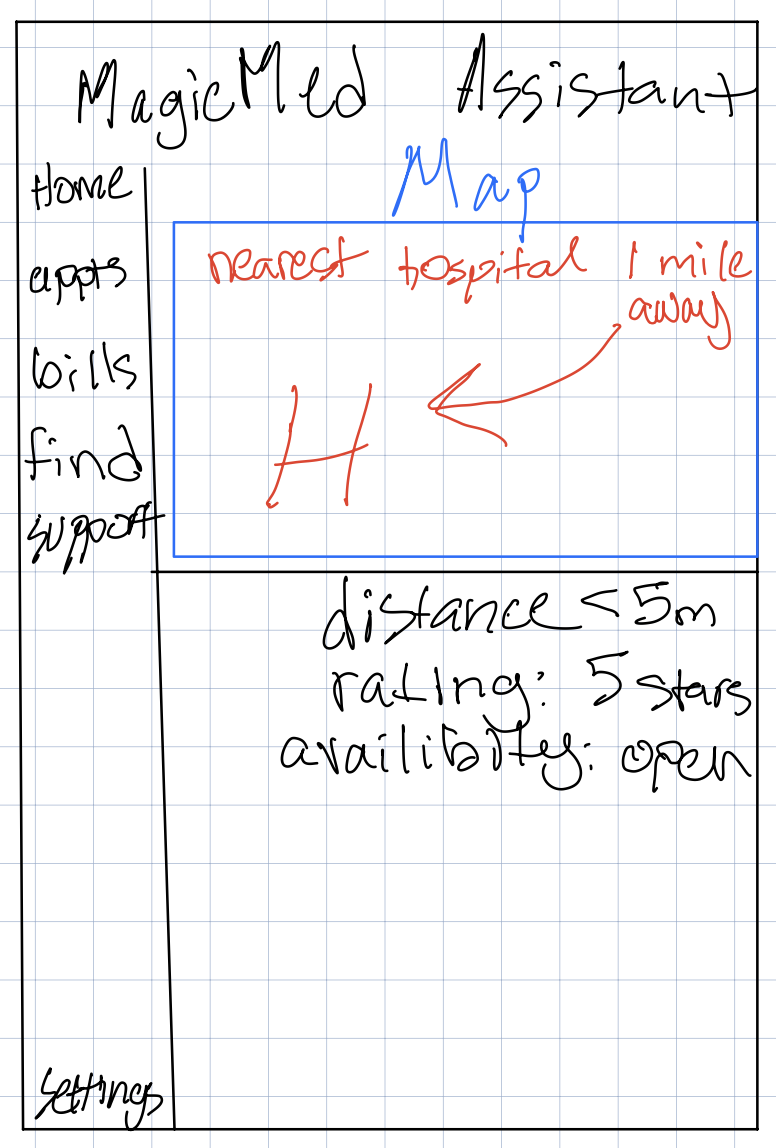 MagicMed Assistant
Home
appts
bills
find
support
settings
Map
nearest hospital 1 mile
away
H
distance < 5m
rating: 5 stars
availibity: open